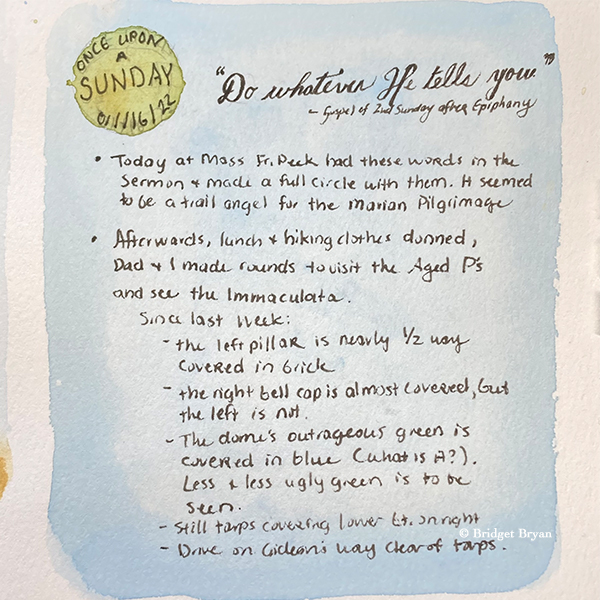 ONCE UPON
A
SUNDAY
01/16/22
"Do whatever He tells you"
- Gospel of 2nd Sunday after Epiphany
• Today at Mass Fr. Peek had these words in the
Sermon + made a full circle with them. It seemed
to be a trail angel for the Marian Pilgrimage
• Afterwards, lunch + hiking clothes donned,
Dad + I made rounds to visit the Aged P's
and see the Immaculata.
Since last week:
- the left pillar is nearly 1/2 way
covered in brick
- the right bell cap is almost covered, but
the left is not.
- The dome's outrageous green is
covered in blue (what is it?).
Less & less ugly green is to be
seen.
- Still tarps covering lower on right
- Drive on Gideon's way clear of tarps.
© Bridget Bryan